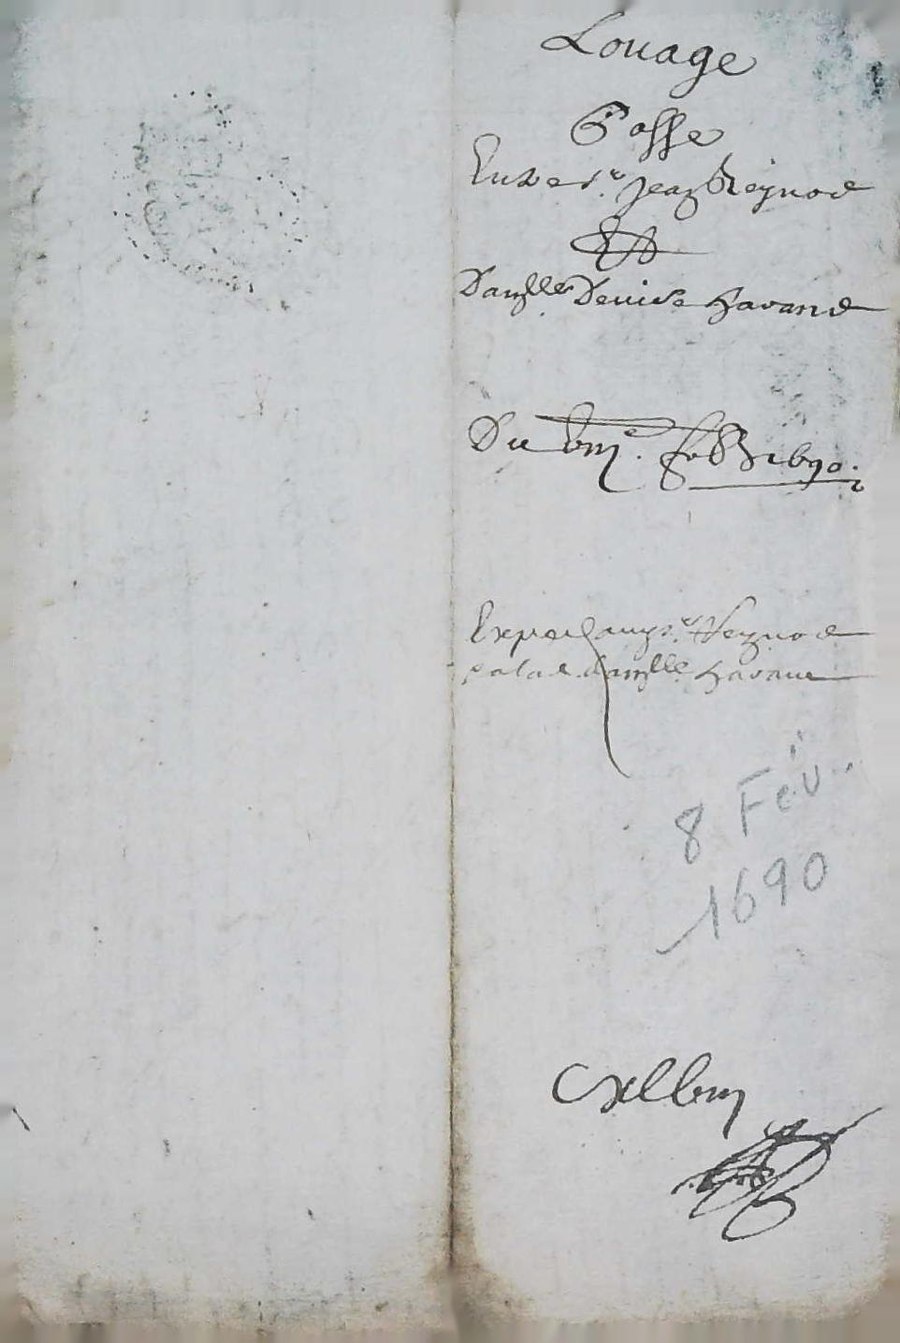 Louage
Passé
Entre sr. Jean Reynod
Et
Damlle Denise Havard
Du viije. febvr. 1690.
Expedié au sr. Reynod
et a lad. damlle havard
8 Fév.
1690